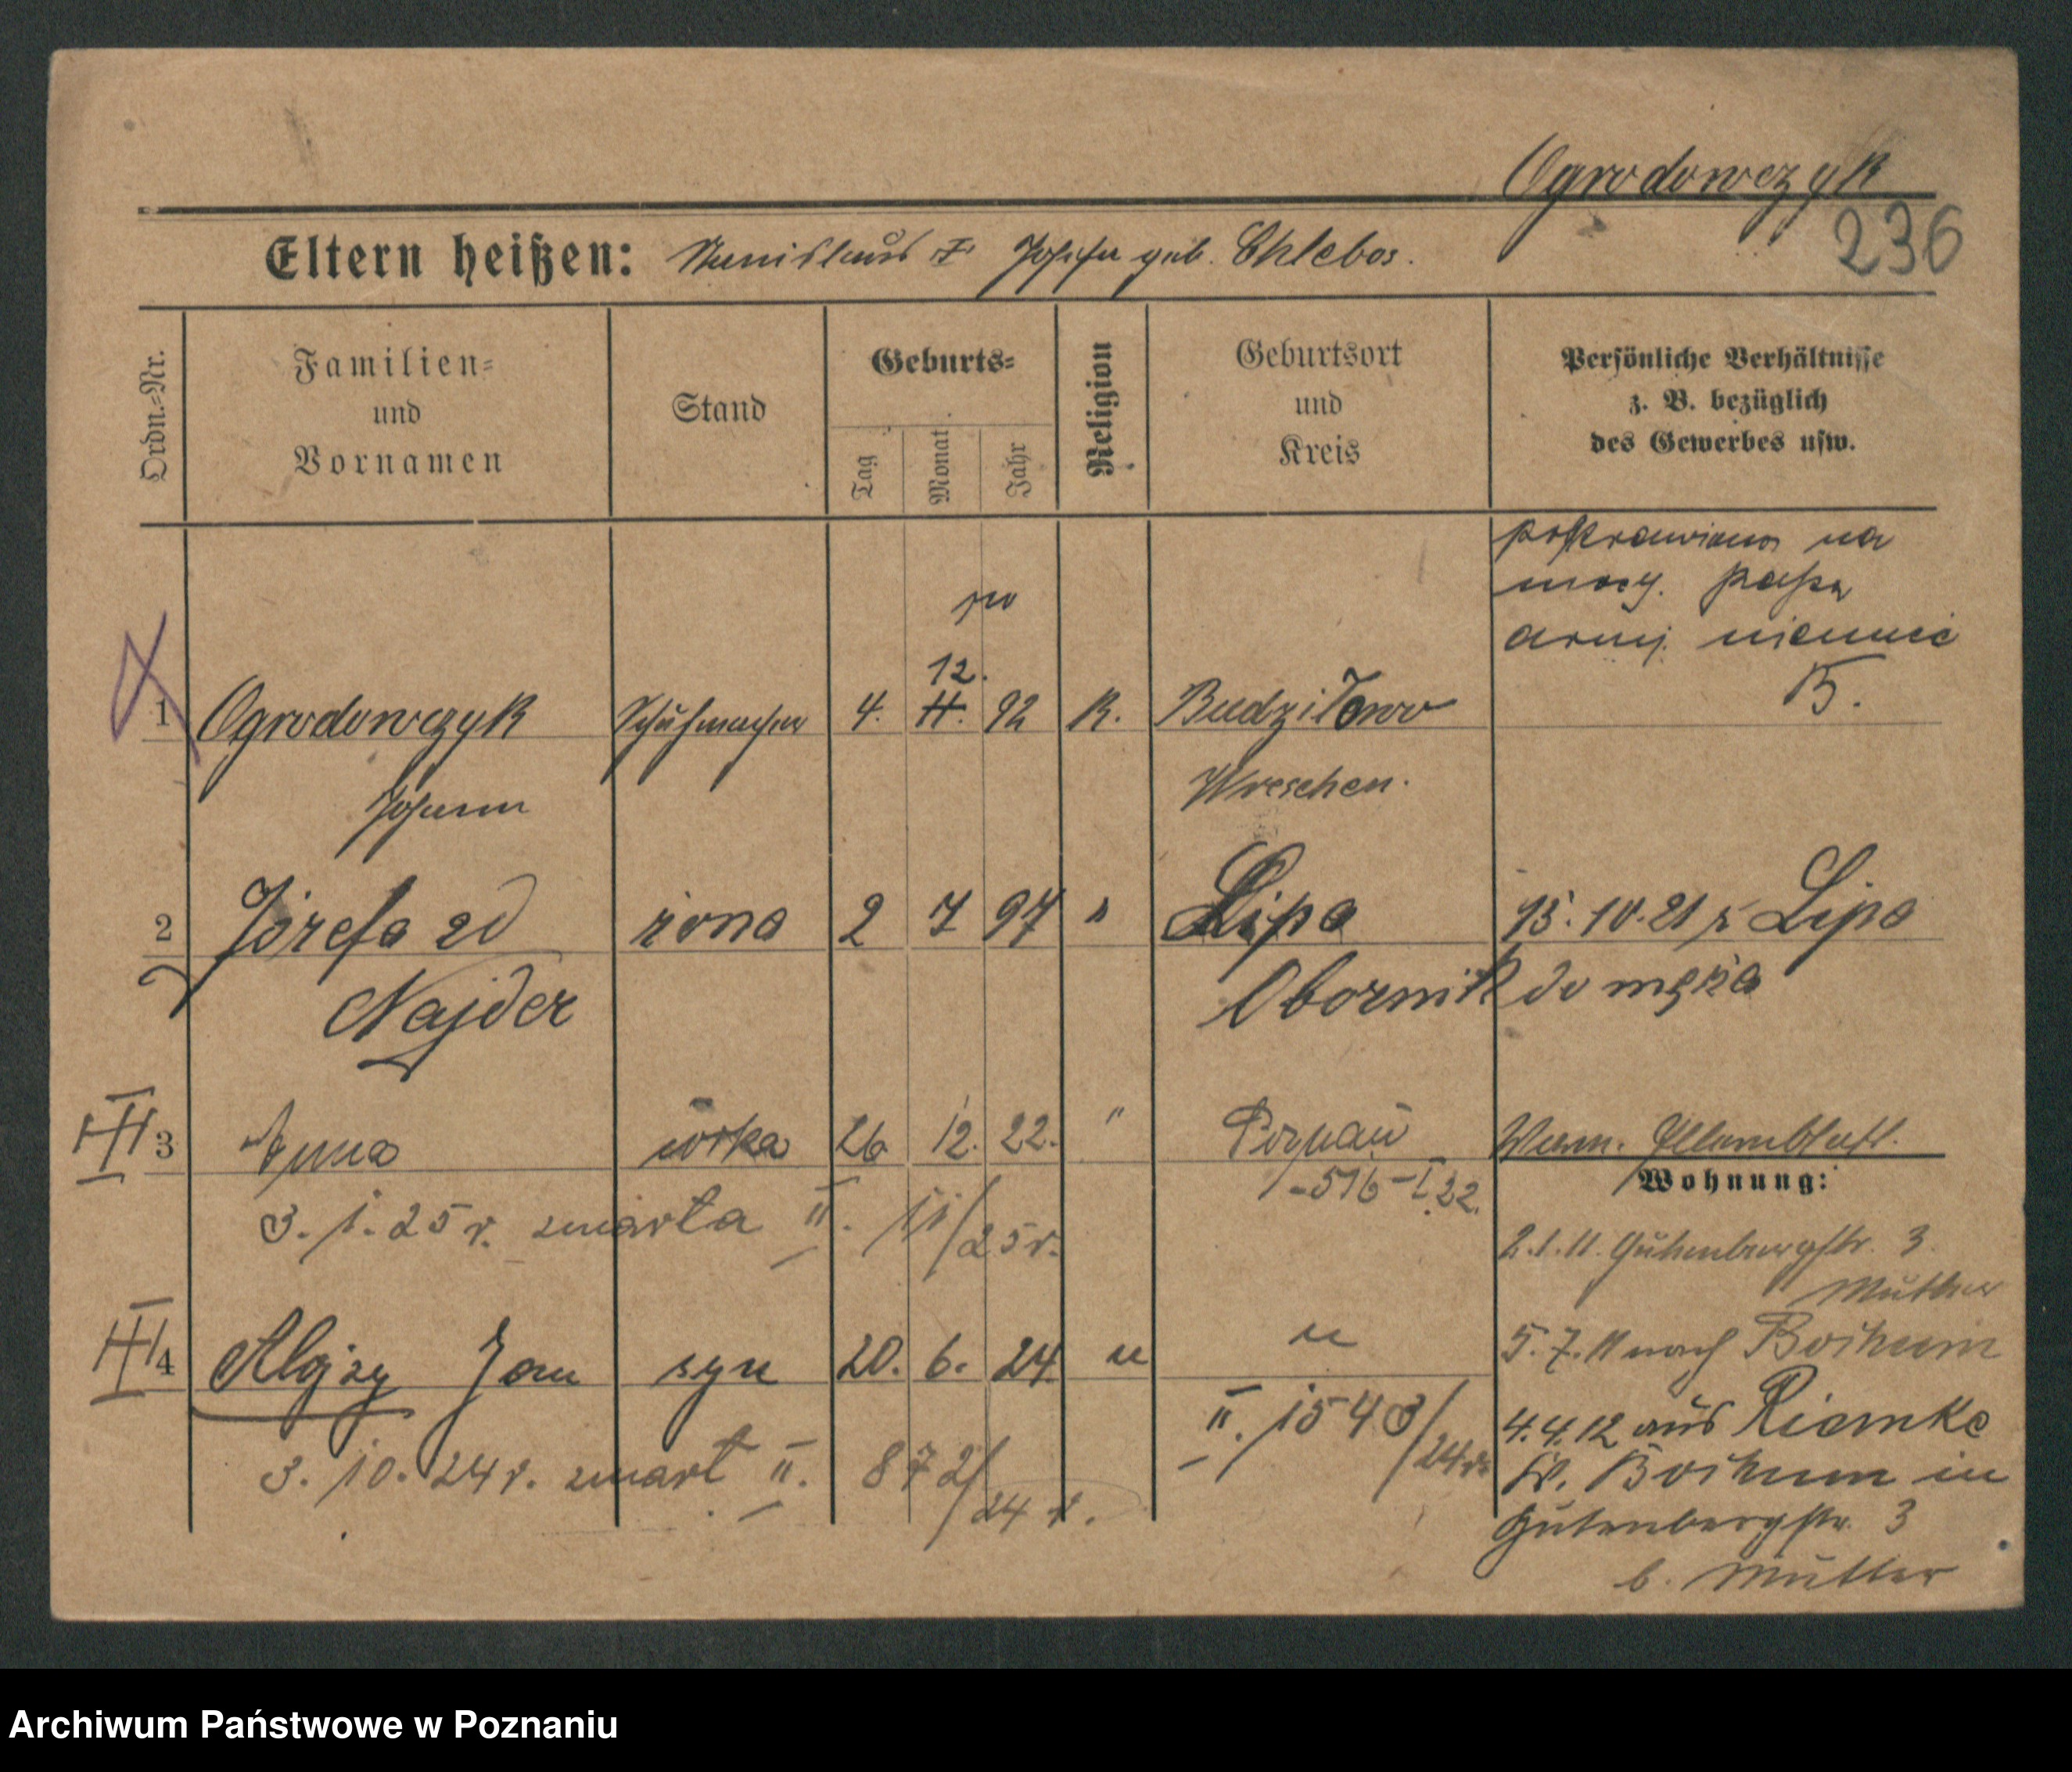 Ogrodowczyk
236
Eltern heißen: Stanislaus I Josefa geb. Chlebos.
Ordn.-Nr.
Familien-
und
Vornamen
Stand
Geburts-
Tag
Monat
Jahr
Religion
Geburtsort
und
Kreis
Persönliche Verhältnisse
z. B. bezüglich
des Gewerbes usw.
na
mocy. paszp
armj. niemiec
B.
12.
1 Ogrodowczyk Schuhmacher 4. 11. 92 K. Budziłowo
Johann Wreschen.
2 Józefa zd żona 2 7 97 " Lipa 15.10.21 z Lipa
Najder Obornik do męża
III 3 Anna córka 26 12. 22. " Poznań
Wohnung:
-516-I.22.
3. 1. 25 r. zmarła II. 11/25 r.
2.1.11. Gutenbergstr. 3
Mutter
III 4 Alojzy Jan syn 20. 6. 24 " " 5.7.11 nach Bochum
II. 1543/24 r.
4.4.12 aus Riemke
Kr. Bochum in
3. 10. 24 r. zmarł II. 872/24 r.
Gutenbergstr. 3
b. Mutter
Archiwum Państwowe w Poznaniu